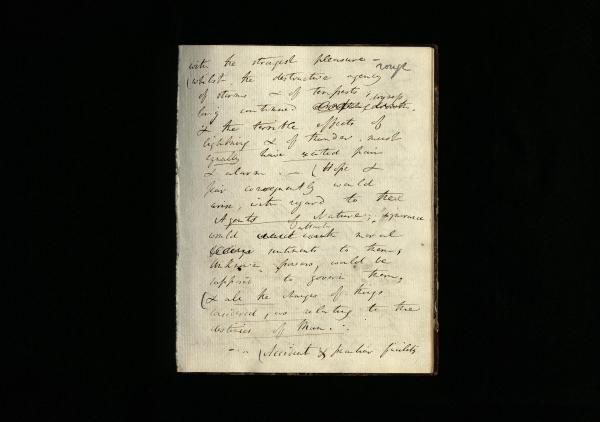 with the strongest pleasure –
rough
(whilst the destructive agency
of storms & of tempests,
long continued
& the terrible effects of
lightning & of thunder must
equally have excited pain
& alarm. – (Hope &
fear consequently would
arise, with regard to these
Agents of Nature; ignorance
attach
would moral
sentiments to them,
unknown powers, would be
supposed to govern them,
(& all the changes of things
considered, as relating to the
destinies of Man. –
– (Accident & peculiar facility